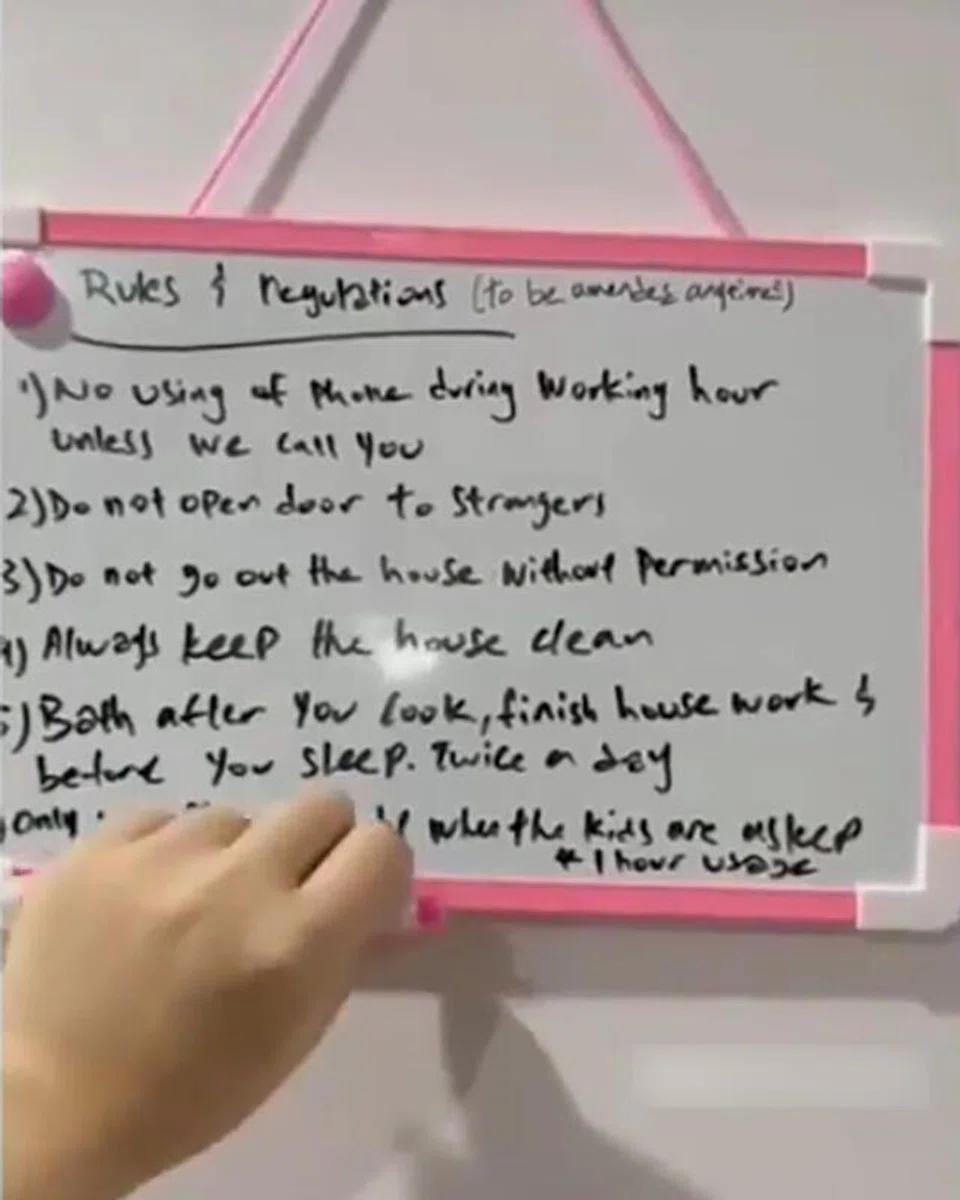 Rules & regulations (to be amended anytime!)
1) No using of phone during working hour
unless we call you
2) Do not open door to strangers
3) Do not go out the house without permission
4) Always keep the house clean
5) Bath after you cook, finish house work &
before you sleep. Twice a day
Only when the kids are asleep
* 1 hour usage